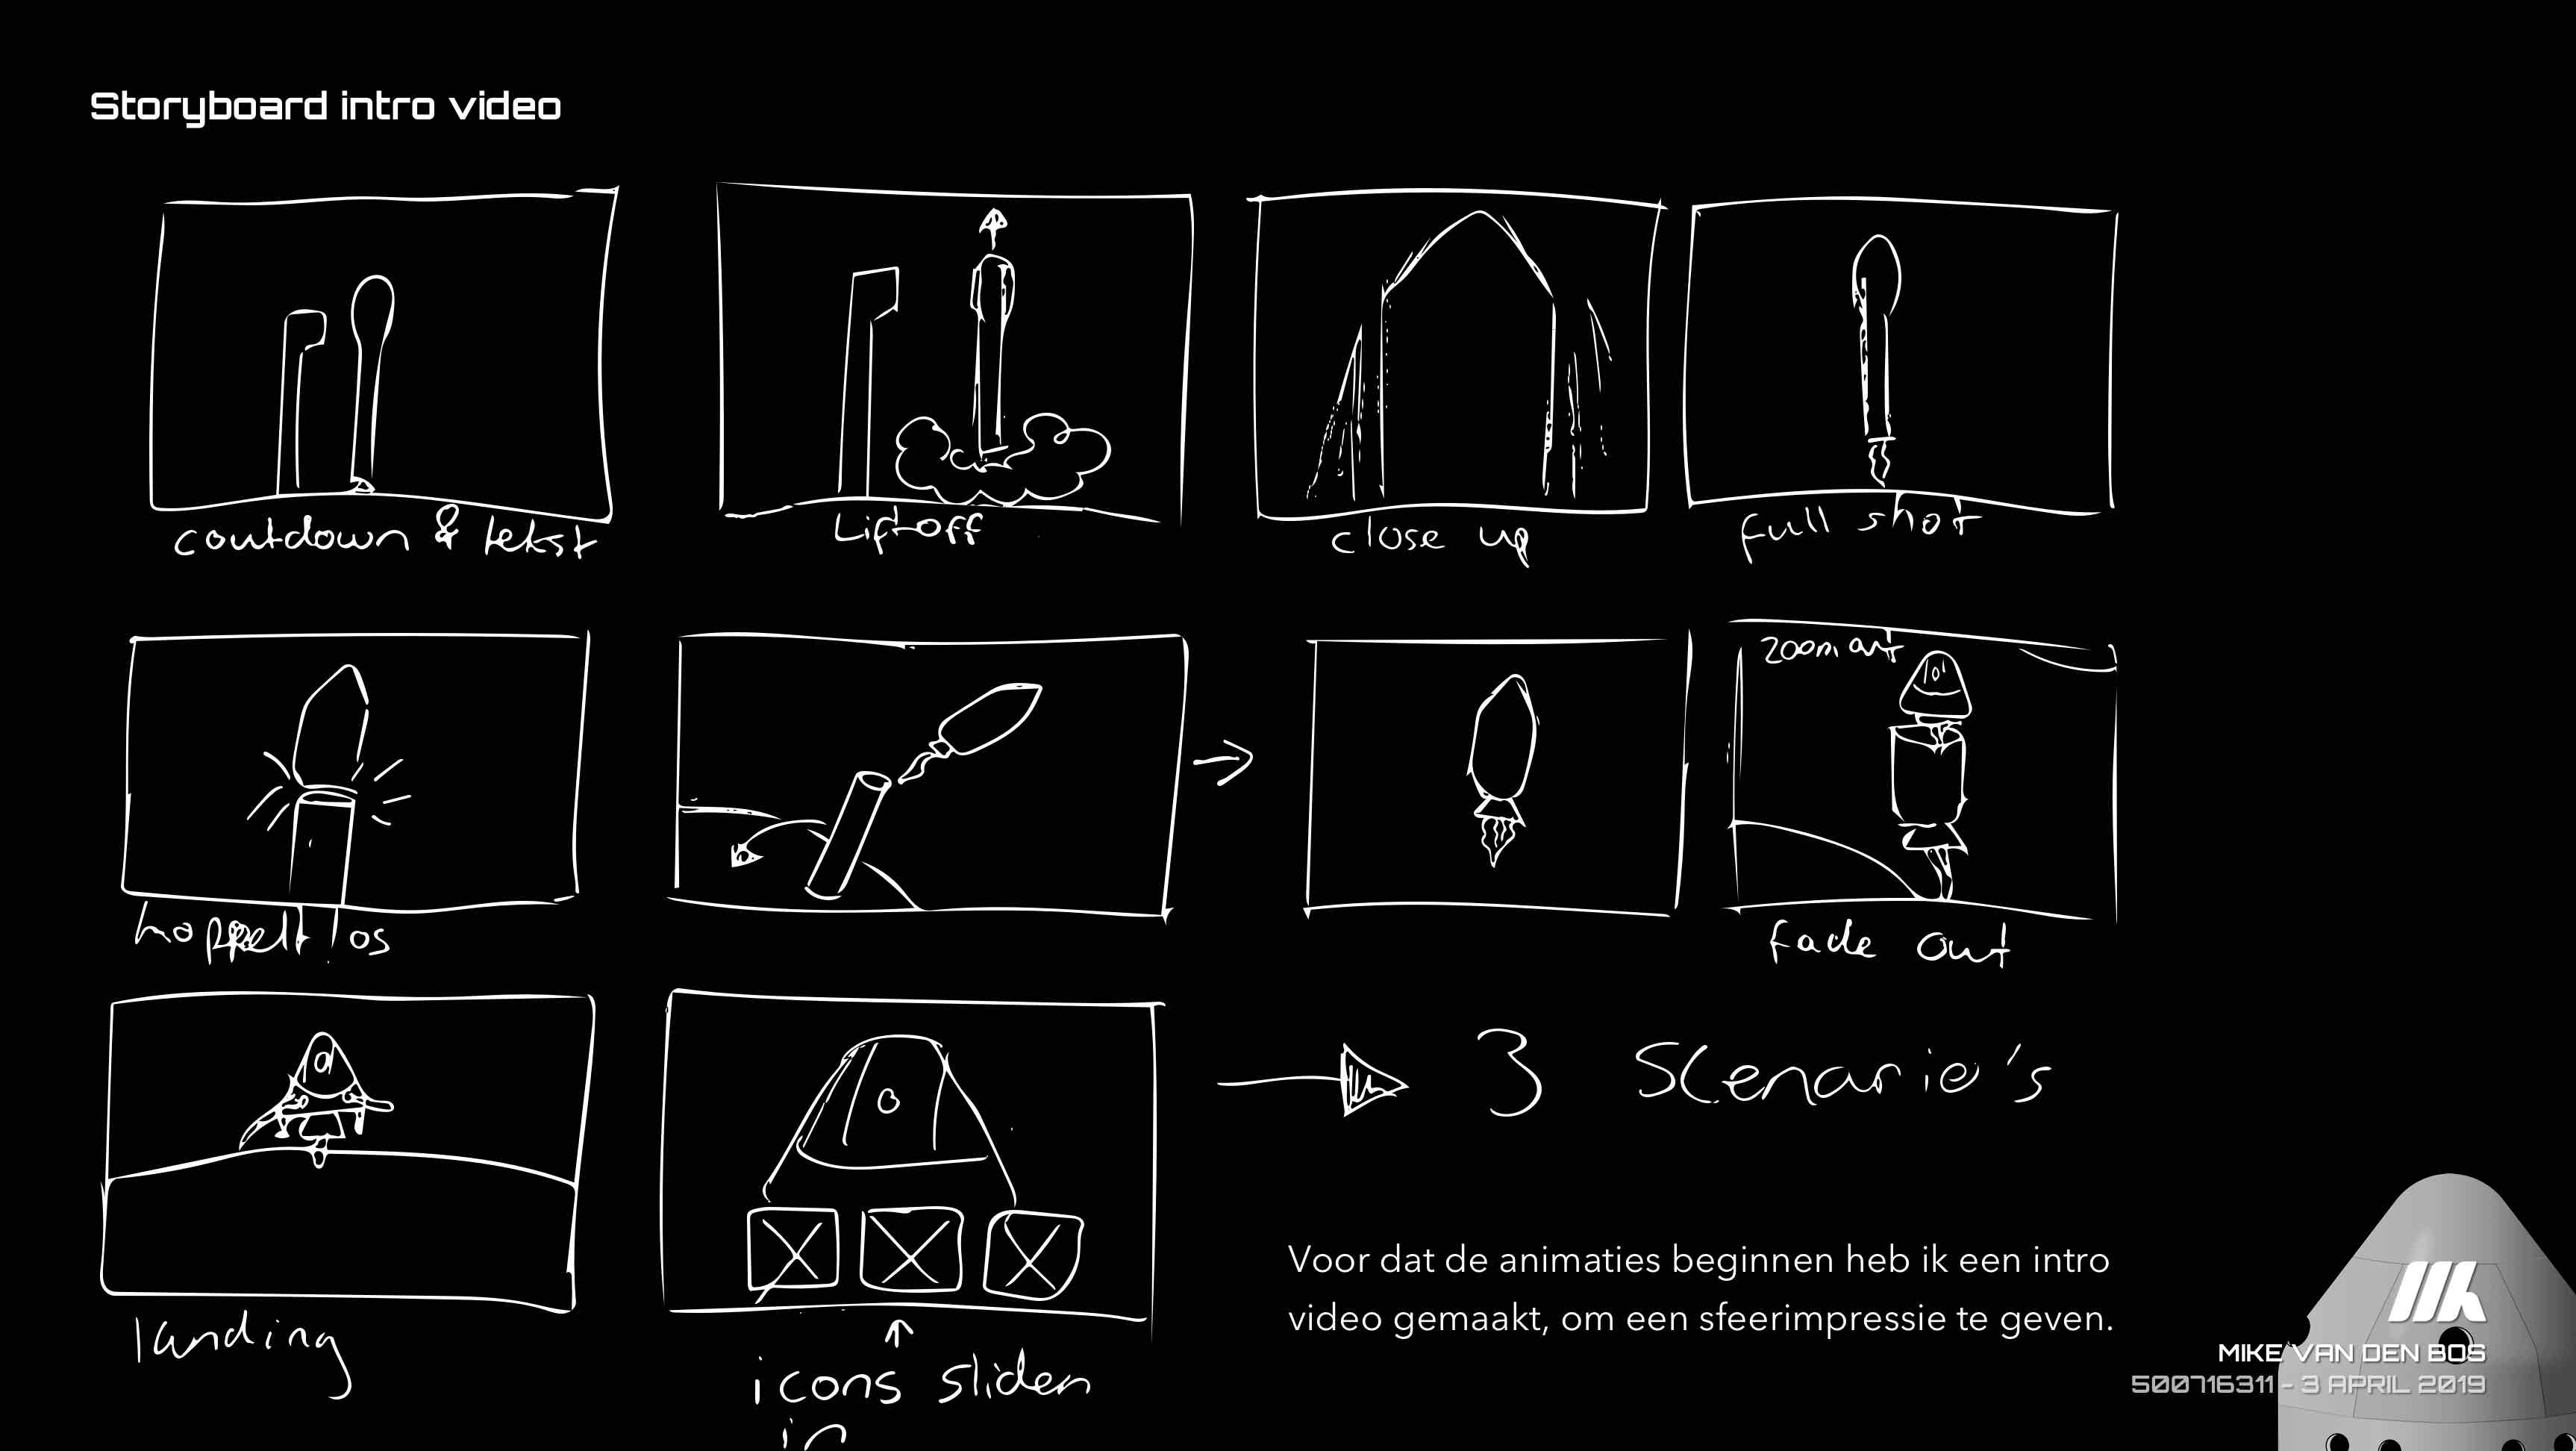 Storyboard intro video
coutdown & tekst
Liftoff
close up
full shot
hoppelt los
zoom out
fade out
landing
icons sliden
in
3 Scenario's
Voor dat de animaties beginnen heb ik een intro
video gemaakt, om een sfeerimpressie te geven.
MIKE VAN DEN BOS
500716311 - 3 APRIL 2019